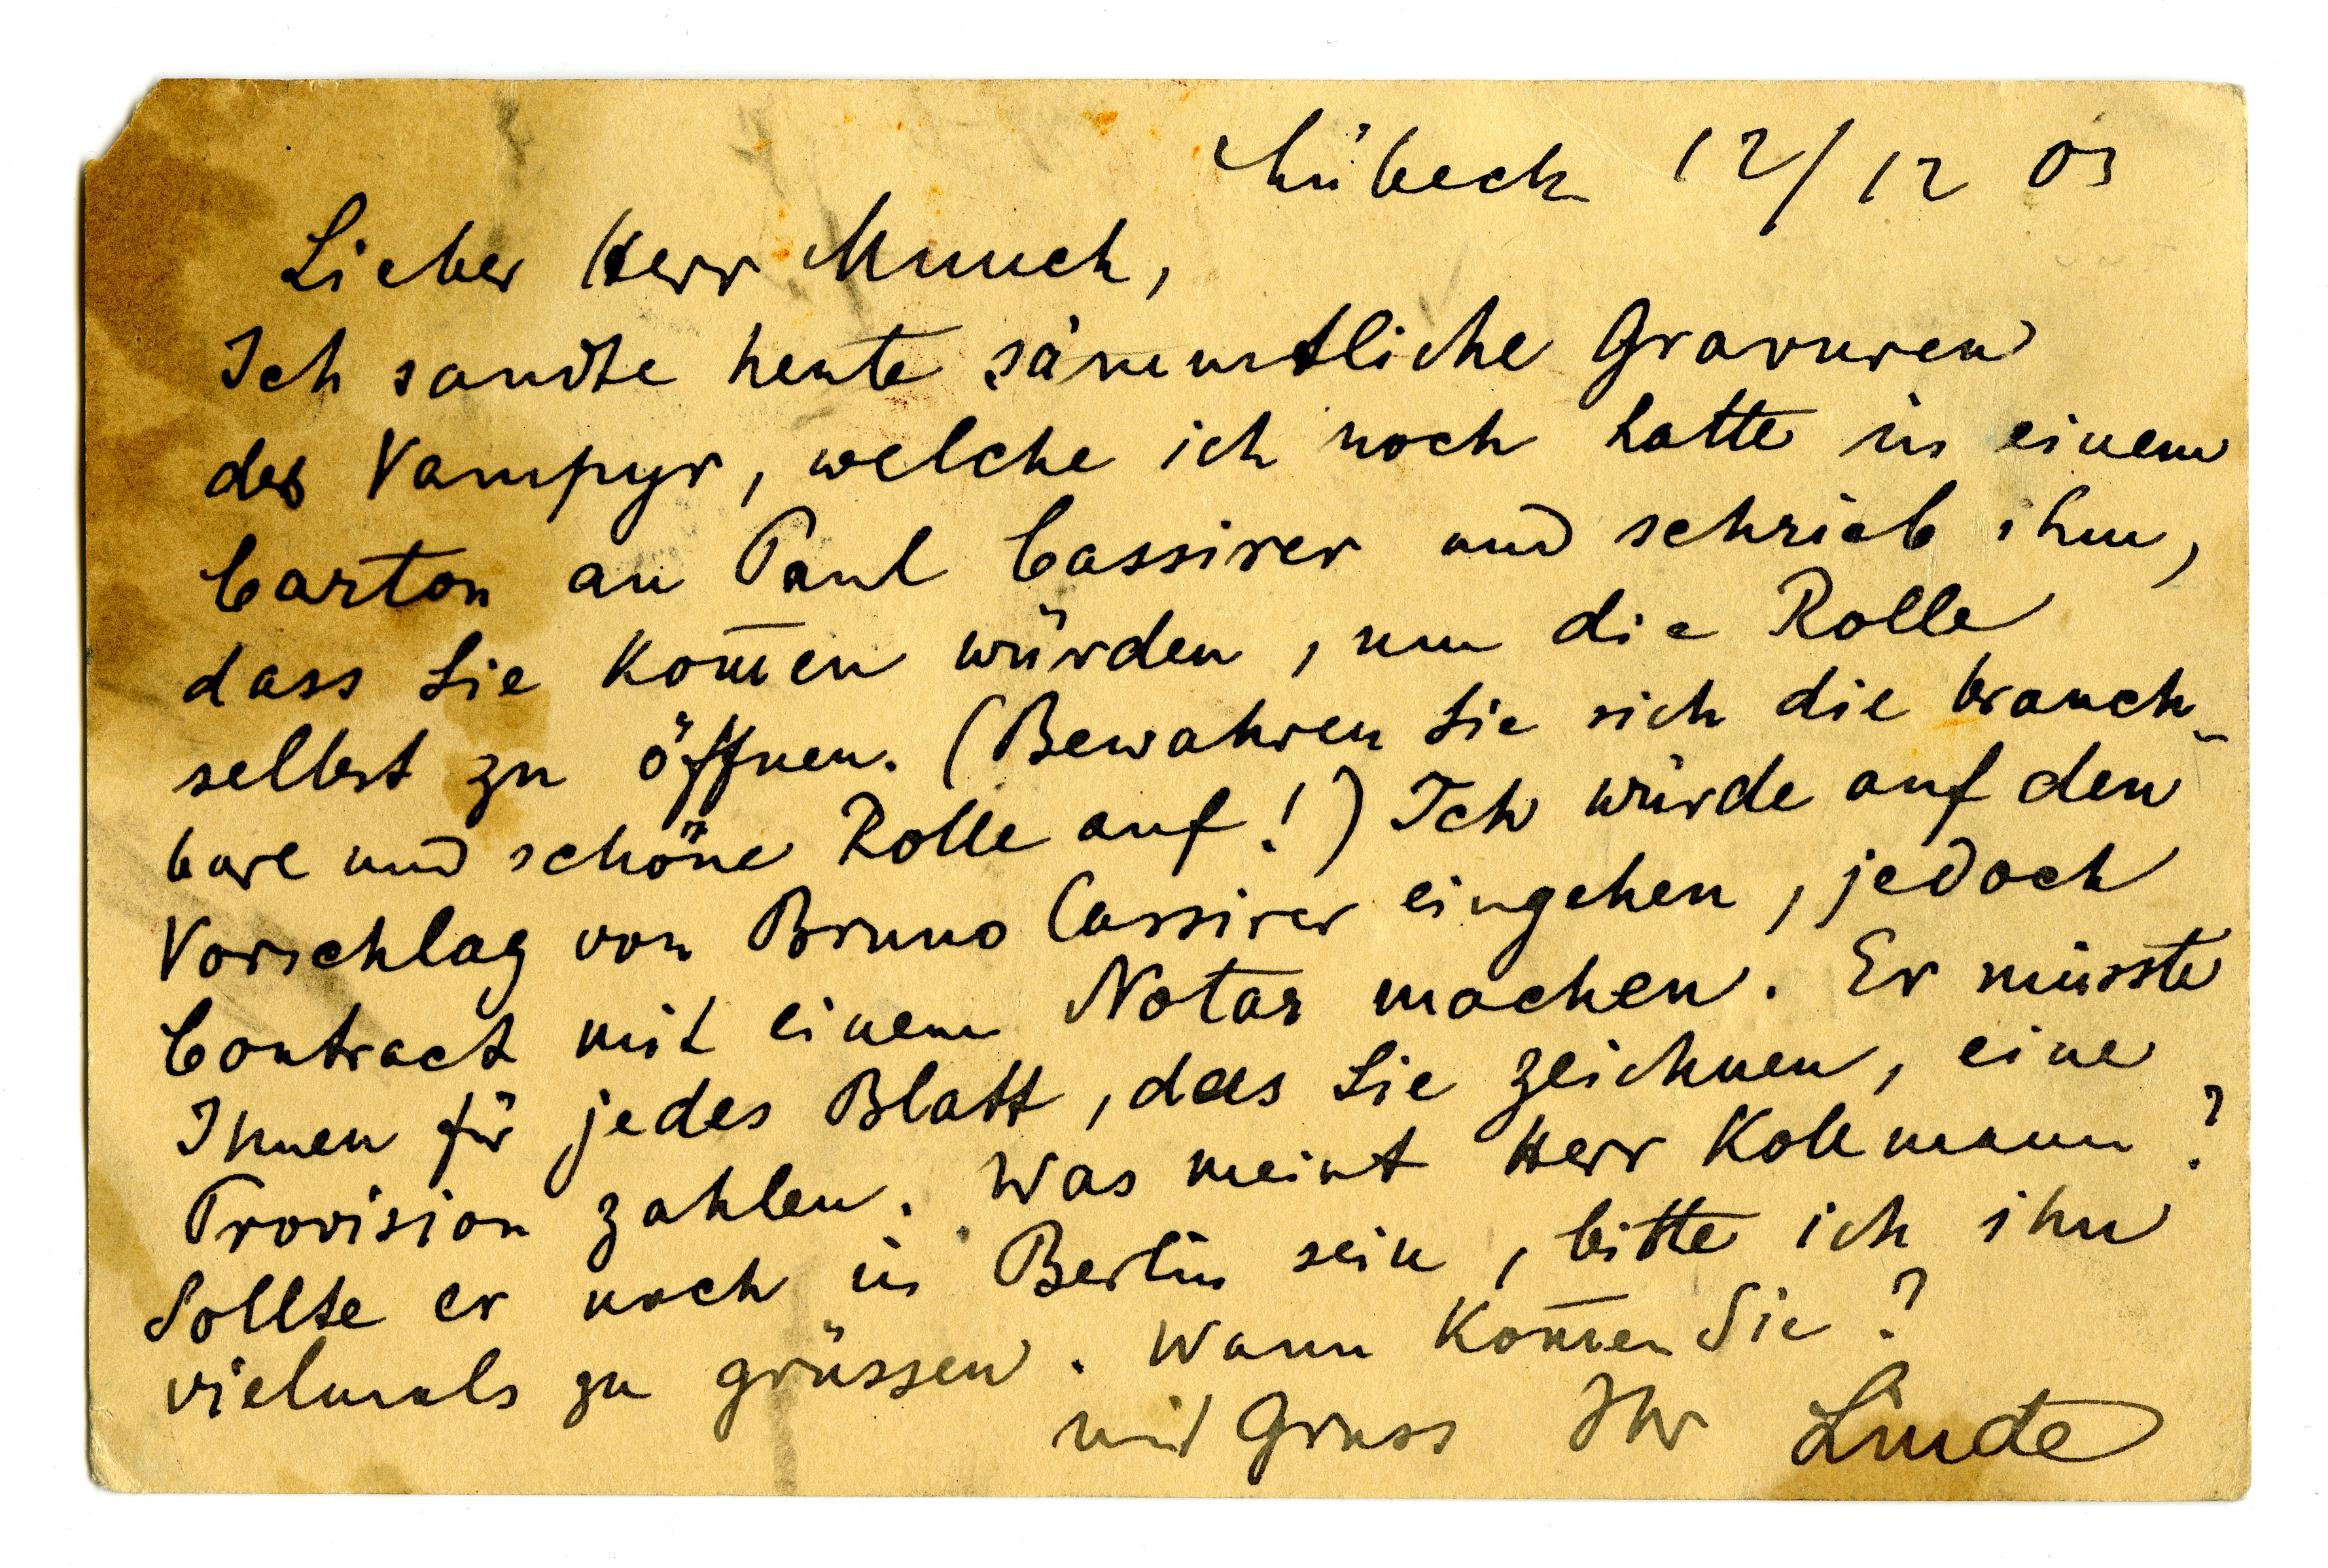 Lübeck 12/12 03
Lieber Herr Munch,
Ich sandte heute sämmtliche Gravuren
des Vampyr, welche ich noch hatte in einem
Carton an Paul Cassirer und schrieb ihm,
dass Sie kom̄en würden, um die Rolle
selbst zu öffnen. (Bewahren Sie sich die brauch-
bare und schöne Rolle auf!) Ich würde auf den
Vorschlag von Bruno Cassirer eingehen, jedoch
Contract mit einem Notar machen. Er müsste
Ihnen für jedes Blatt, das Sie zeichnen, eine
Provision zahlen. Was meint Herr Kollmann?
Sollte er noch in Berlin sein, bitte ich ihn
vielmals zu grüssen. Wann kom̄en Sie?
mit Gruss Ihr Linde